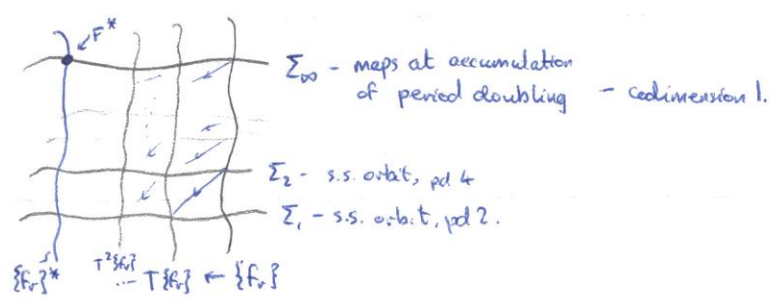 F*
Σ∞ - maps at accumulation
of period doubling - codimension 1.
Σ₂ - s.s. orbit, pd 4
Σ₁ - s.s. orbit, pd 2.
{fᵣ}* ... T²{fᵣ} T{fᵣ} ← {fᵣ}